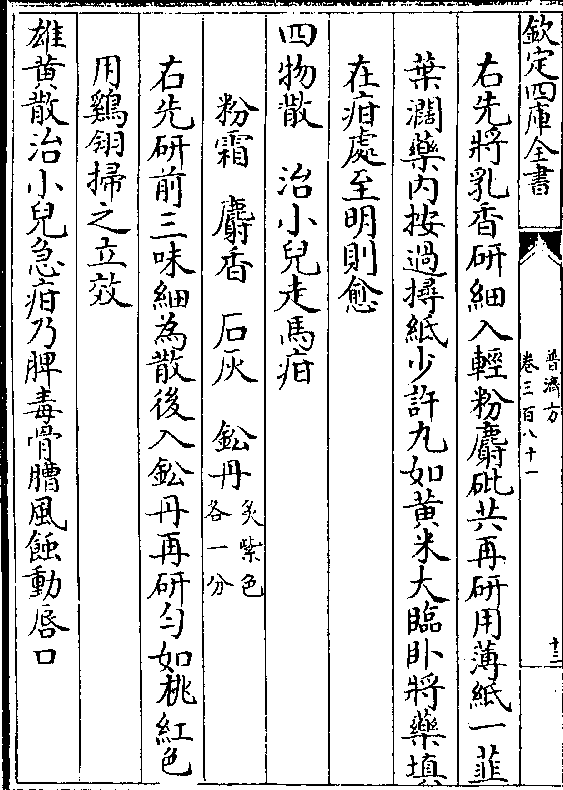 欽定四庫全書
普濟方
卷三百八十一
十三
右先將乳香研細入輕粉麝砒共再研用薄紙一韮
葉濶藥内按過撏紙少許丸如黄米大臨卧將藥填
在疳處至明則愈
四物散 治小兒走馬疳
粉霜 麝香 石灰 鈆丹炙紫色各一分
右先研前三味細為散後入鈆丹再研勻如桃紅色
用鷄翎掃之立效
雄黄散治小兒急疳乃脾毒骨膻風蝕動唇口